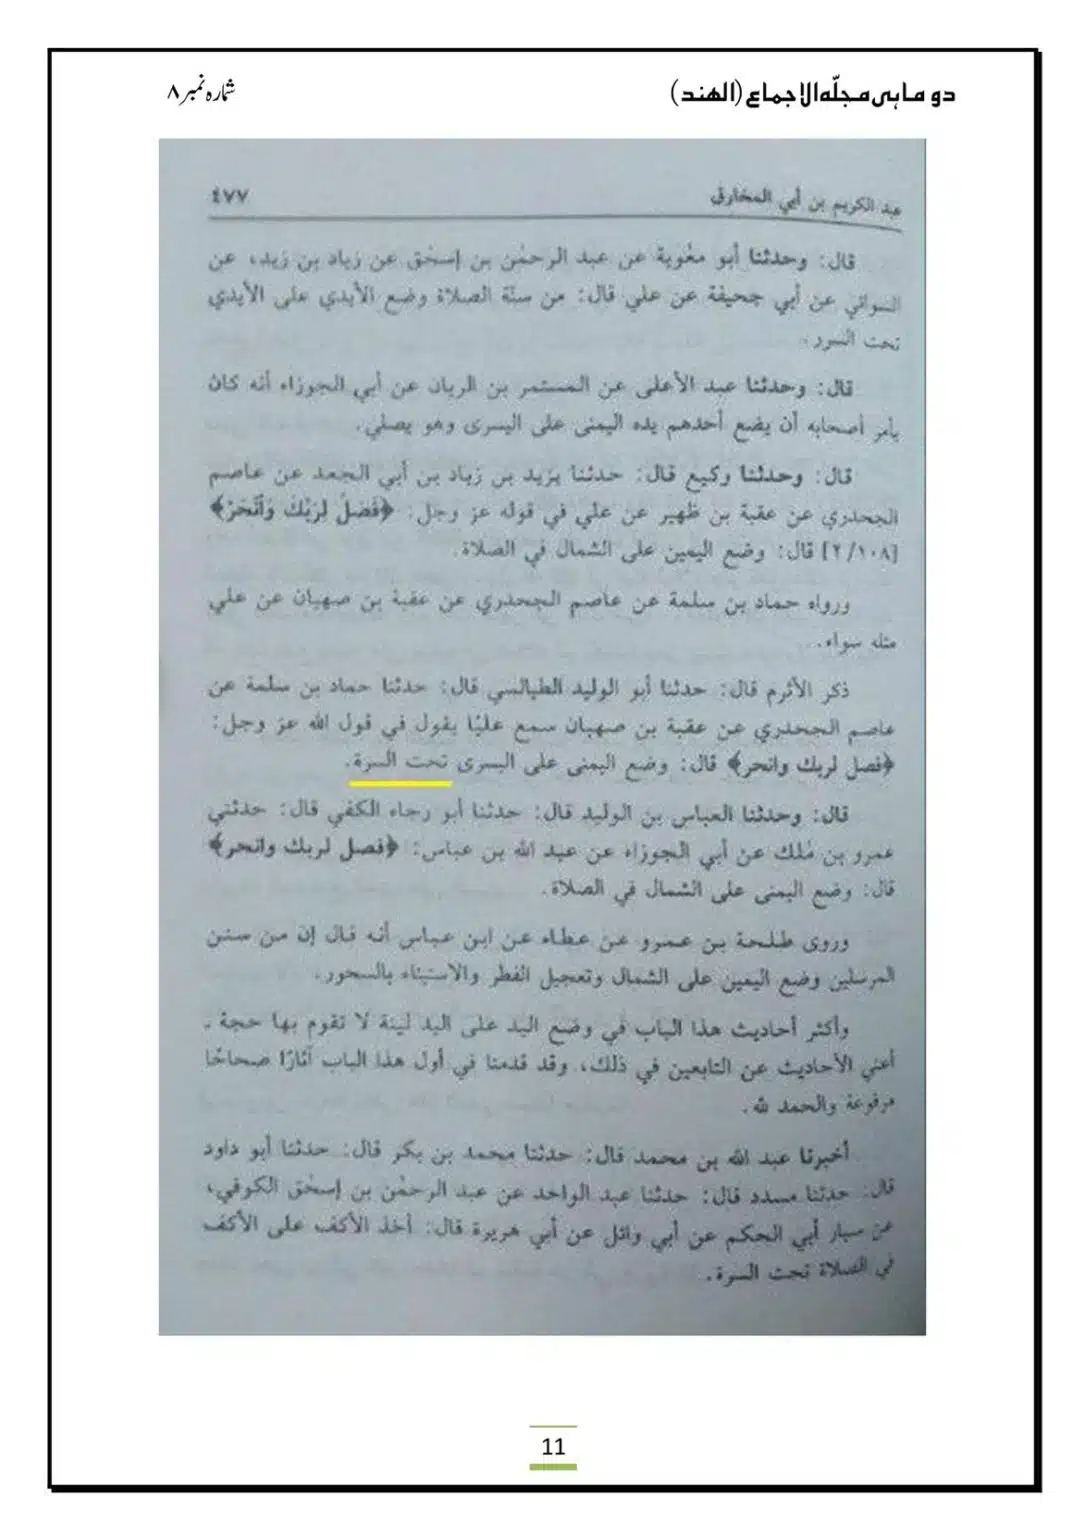 دو ماہی مجلّہ الاجماع (الھند)
شمارہ نمبر ۸
عبد الكريم بن أبي المخارق
٤٧٧
قال: وحدثنا أبو مغوية عن عبد الرحمٰن بن إسحٰق عن زياد بن زيد، عن
السوائي عن أبي جحيفة عن علي قال: من سنّة الصلاة وضع الأيدي على الأيدي
تحت السرر.
قال: وحدثنا عبد الأعلى عن المستمر بن الريان عن أبي الجوزاء أنه كان
يأمر أصحابه أن يضع أحدهم يده اليمنى على اليسرى وهو يصلي.
قال: وحدثنا وكيع قال: حدثنا يزيد بن زياد بن أبي الجعد عن عاصم
الجحدري عن عقبة بن ظهير عن علي في قوله عز وجل: ﴿فَصَلِّ لِرَبِّكَ وَٱنْحَرْ﴾
[٢/١٠٨] قال: وضع اليمين على الشمال في الصلاة.
ورواه حماد بن سلمة عن عاصم الجحدري عن عقبة بن صهبان عن علي
مثله سواء..
ذكر الأثرم قال: حدثنا أبو الوليد الطيالسي قال: حدثنا حماد بن سلمة عن
عاصم الجحدري عن عقبة بن صهبان سمع عليًا يقول في قول الله عز وجل:
﴿فصل لربك وانحر﴾ قال: وضع اليمنى على اليسرى تحت السرة.
قال: وحدثنا العباس بن الوليد قال: حدثنا أبو رجاء الكفي قال: حدثني
عمرو بن مٰلك عن أبي الجوزاء عن عبد الله بن عباس: ﴿فصل لربك وانحر﴾
قال: وضع اليمنى على الشمال في الصلاة.
وروى طلحة بن عمرو عن عطاء عن ابن عباس أنه قال إن من سنن
المرسلين وضع اليمين على الشمال وتعجيل الفطر والاستيناء بالسحور.
وأكثر أحاديث هذا الباب في وضع اليد على اليد لينة لا تقوم بها حجة ـ
أعني الأحاديث عن التابعين في ذلك، وقد قدمنا في أول هذا الباب آثارًا صحاحًا
مرفوعة والحمد لله.
أخبرنا عبد الله بن محمد قال: حدثنا محمد بن بكر قال: حدثنا أبو داود
قال: حدثنا مسدد قال: حدثنا عبد الواحد عن عبد الرحمٰن بن إسحٰق الكوفي،
عن سيار أبي الحكم عن أبي وائل عن أبي هريرة قال: أخذ الأكف على الأكف
في الصلاة تحت السرة.
11